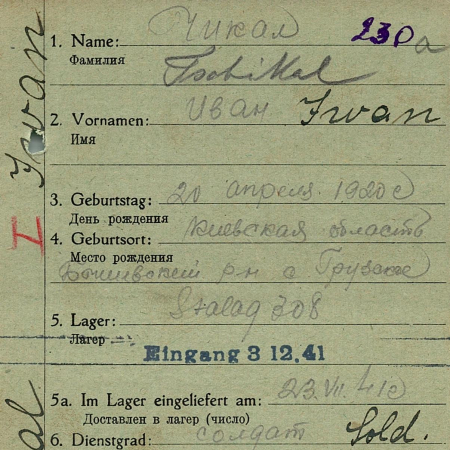 Чикал 230 a
1. Name:
Фамилия Tschikal
Иван Iwan
2. Vornamen:
Имя
3. Geburtstag: 20 апреля 1920 г
День рождения
4. Geburtsort: Киевская область
Место рождения
р-н с Грузкое
Stalag 308
5. Lager:
Лагер
Eingang 3 12.41
5a. Im Lager eingeliefert am: 23.VII.41 г
Доставлен в лагер (число)
6. Dienstgrad: солдат Sold.
Iwan
I
al